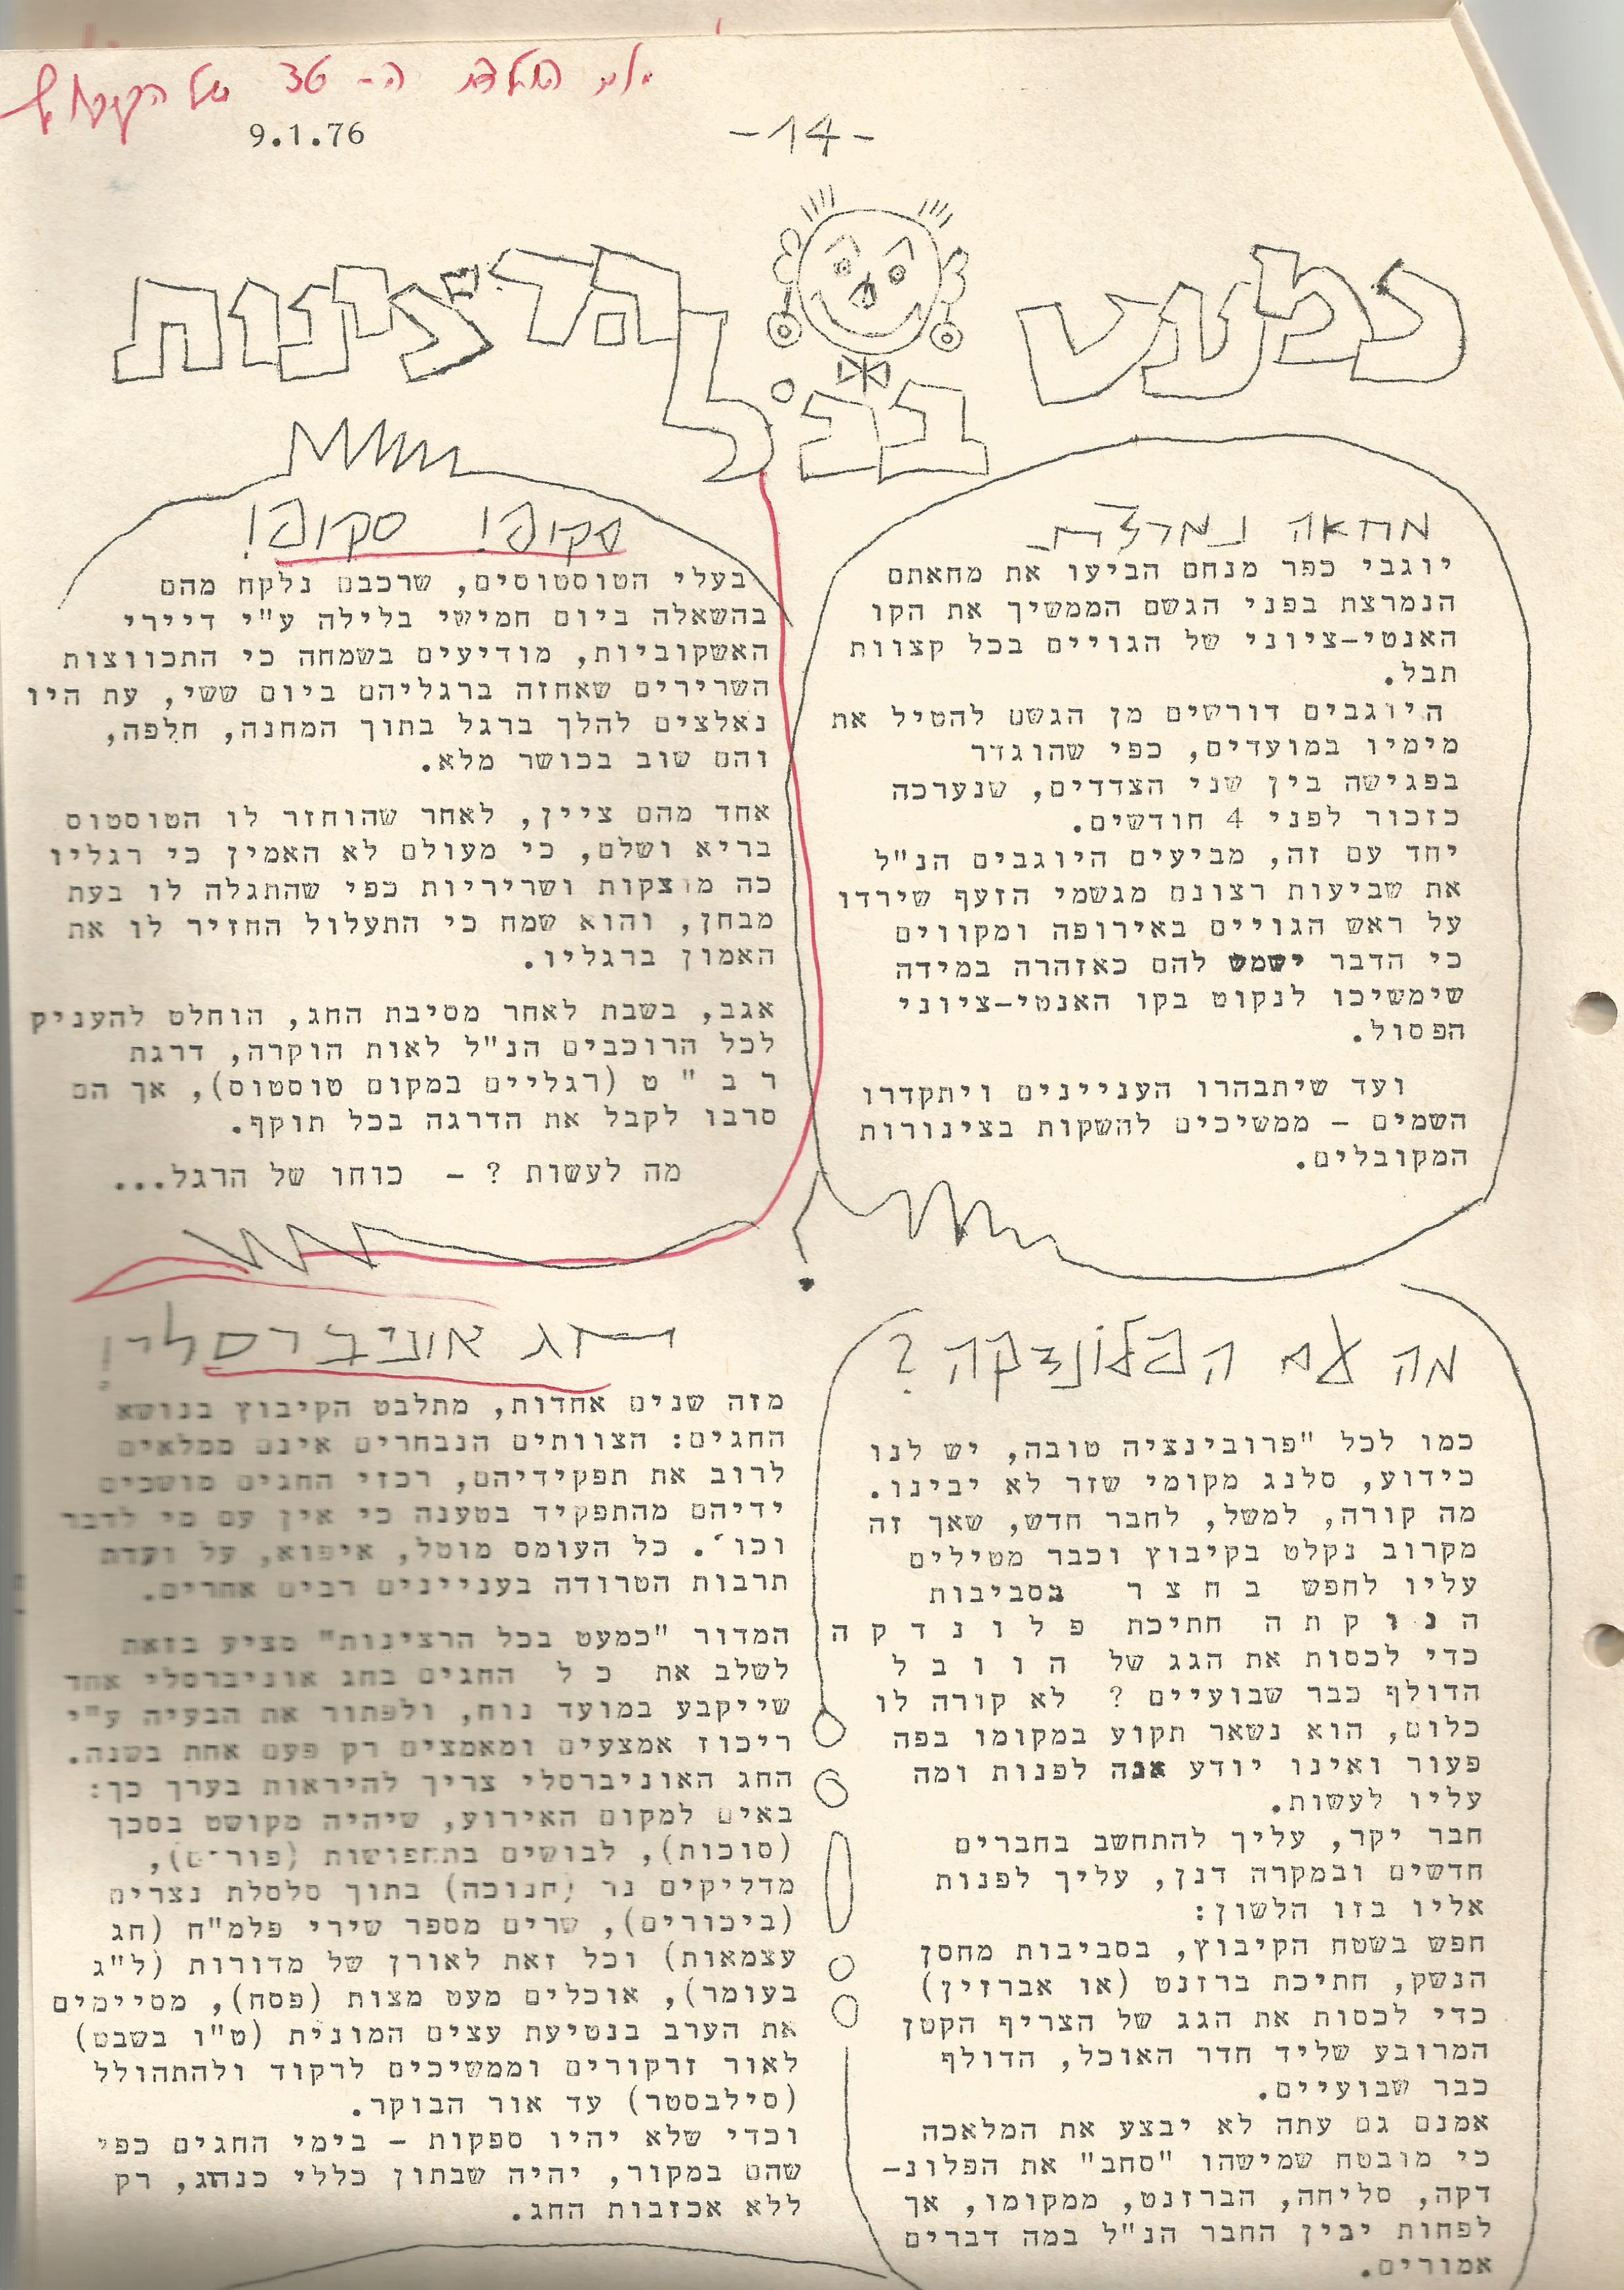 יום הולדת ה- 36 של הקיבוץ
9.1.76
-14-
כמעט בכל הרצינות
מחאה נמרצת
יוגבי כפר מנחם הביעו את מחאתם
הנמרצת בפני הגשם הממשיך את הקו
האנטי-ציוני של הגויים בכל קצוות
תבל.
היוגבים דורשים מן הגשם להטיל את
מימיו במועדים, כפי שהוגדר
בפגישה בין שני הצדדים, שנערכה
כזכור לפני 4 חודשים.
יחד עם זה, מביעים היוגבים הנ"ל
את שביעות רצונם מגשמי הזעף שירדו
על ראש הגויים באירופה ומקווים
כי הדבר ישמש להם כאזהרה במידה
שימשיכו לנקוט בקו האנטי-ציוני
הפסול.
ועד שיתבהרו העניינים ויתקדרו
השמים - ממשיכים להשקות בצינורות
המקובלים.
סקופ! סקופ!
בעלי הטוסטוסים, שרכבם נלקח מהם
בהשאלה ביום חמישי בלילה ע"י דיירי
האשקוביות, מודיעים בשמחה כי התכווצות
השרירים שאחזה ברגליהם ביום ששי, עת היו
נאלצים להלך ברגל בתוך המחנה, חלפה,
והם שוב בכושר מלא.
אחד מהם ציין, לאחר שהוחזר לו הטוסטוס
בריא ושלם, כי מעולם לא האמין כי רגליו
כה מוצקות ושריריות כפי שהתגלה לו בעת
מבחן, והוא שמח כי התעלול החזיר לו את
האמון ברגליו.
אגב, בשבת לאחר מסיבת החג, הוחלט להעניק
לכל הרוכבים הנ"ל לאות הוקרה, דרגת
ר ב " ט (רגליים במקום טוסטוס), אך הם
סרבו לקבל את הדרגה בכל תוקף.
מה לעשות ? - כוחו של הרגל...
מה עם הפלונדקה?
כמו לכל "פרובינציה טובה, יש לנו
כידוע, סלנג מקומי שזר לא יבינו.
מה קורה, למשל, לחבר חדש, שאך זה
מקרוב נקלט בקיבוץ וכבר מטילים
עליו לחפש ב ח צ ר בסביבות
ה נ ו ק ת ה חתיכת פ ל ו נ ד ק ה
כדי לכסות את הגג של ה ו ו ב ל
הדולף כבר שבועיים ? לא קורה לו
כלום, הוא נשאר תקוע במקומו בפה
פעור ואינו יודע אנה לפנות ומה
עליו לעשות.
חבר יקר, עליך להתחשב בחברים
חדשים ובמקרה דנן, עליך לפנות
אליו בזו הלשון:
חפש בשטח הקיבוץ, בסביבות מחסן
הנשק, חתיכת ברזנט (או אברזין)
כדי לכסות את הגג של הצריף הקטן
המרובע שליד חדר האוכל, הדולף
כבר שבועיים.
אמנם גם עתה לא יבצע את המלאכה
כי מובטח שמישהו "סחב" את הפלונ-
דקה, סליחה, הברזנט, ממקומו, אך
לפחות יבין החבר הנ"ל במה דברים
אמורים.
חג אוניברסלי!
מזה שנים אחדות, מתלבט הקיבוץ בנושא
החגים: הצוותים הנבחרים אינם ממלאים
לרוב את תפקידיהם, רכזי החגים מושכים
ידיהם מהתפקיד בטענה כי אין עם מי לדבר
וכו'. כל העומס מוטל, איפוא, על ועדת
תרבות הטרודה בעניינים רבים אחרים.
המדור "כמעט בכל הרצינות" מציע בזאת
לשלב את כ ל החגים בחג אוניברסלי אחד
שייקבע במועד נוח, ולפתור את הבעיה ע"י
ריכוז אמצעים ומאמצים רק פעם אחת בשנה.
החג האוניברסלי צריך להיראות בערך כך:
באים למקום האירוע, שיהיה מקושט בסכך
(סוכות), לבושים בתחפושות (פורים),
מדליקים נר (חנוכה) בתוך סלסלת נצרים
(ביכורים), שרים מספר שירי פלמ"ח (חג
עצמאות) וכל זאת לאורן של מדורות (ל"ג
בעומר), אוכלים מעט מצות (פסח), מסיימים
את הערב בנטיעת עצים המונית (ט"ו בשבט)
לאור זרקורים וממשיכים לרקוד ולהתהולל
(סילבסטר) עד אור הבוקר.
וכדי שלא יהיו ספקות - בימי החגים כפי
שהם במקור, יהיה שבתון כללי כנהוג, רק
ללא אכזבות החג.